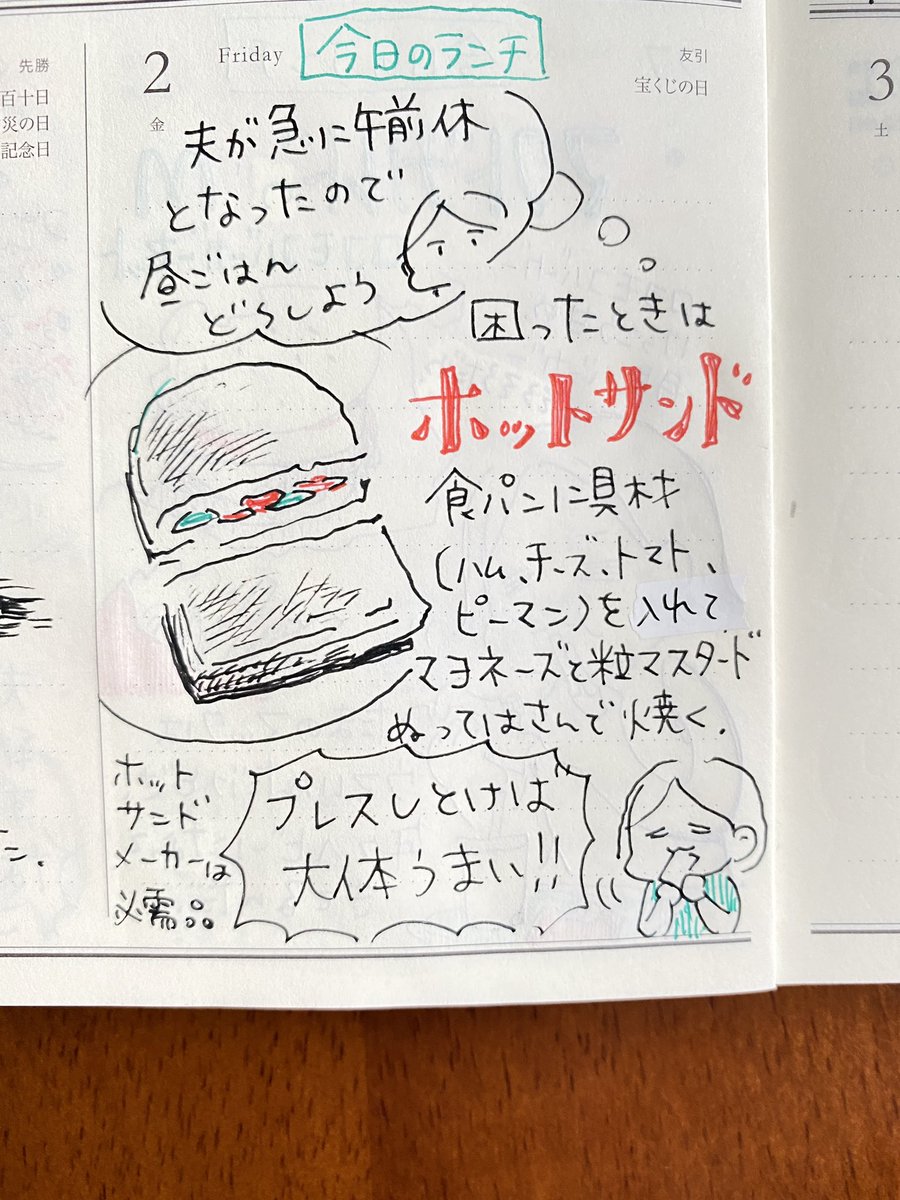 先勝
百十日
災の日
記念日
ン.
2
Friday
金
友引
宝くじの日
今日のランチ
夫が急に午前休
となったので
昼ごはん
どうしよう
困ったときは
ホットサンド
食パンに具材
(ハム、チーズ、トマト、
ピーマン)を入れて
マヨネーズと粒マスタード
ぬってはさんで焼く.
ホット
サンド
メーカーは
必需品
プレスしとけば
大体うまい!!
3
土